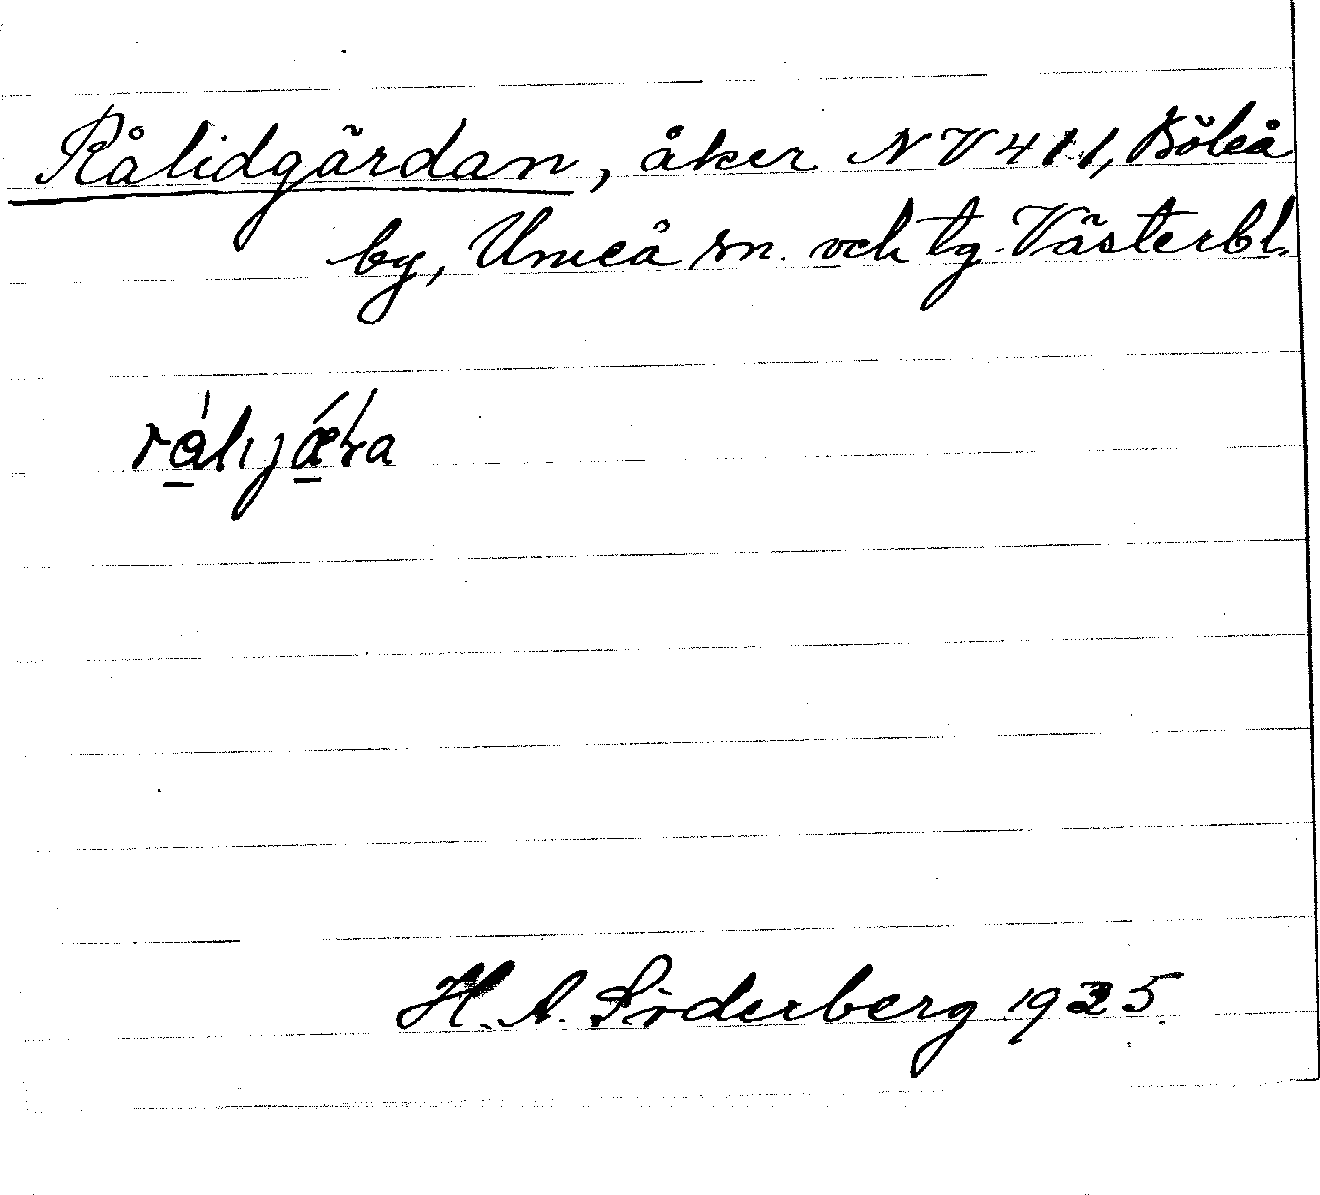 Rålidgärdan, åker NV 411, Böleå
by, Umeå sn. och tg. Västerbl.
H. A. Söderberg 1925.